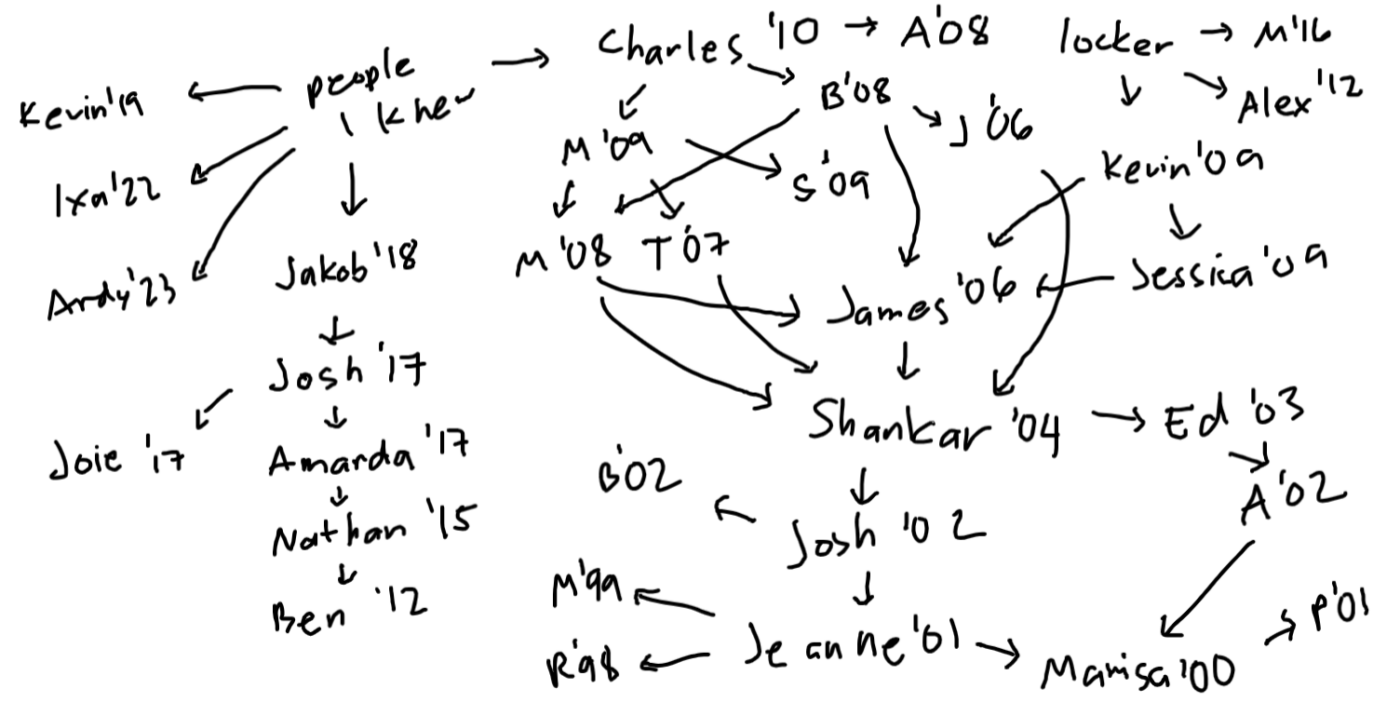 Charles '10 → A'08
locker → M'16
people
I knew →
Kevin'19
B'08
Alex'12
J'06
M'09
Kevin'09
Ixa'22
S'09
M'08
T'07
Jakob'18
Jessica'09
Ardy'23
James '06
Josh '17
Shankar '04 → Ed '03
Joie '17
Amarda '17
B'02
A'02
Nathan '15
Josh '02
M'99
Ben '12
P'01
Jeanne'01 →
R'98 ←
Marisa'00